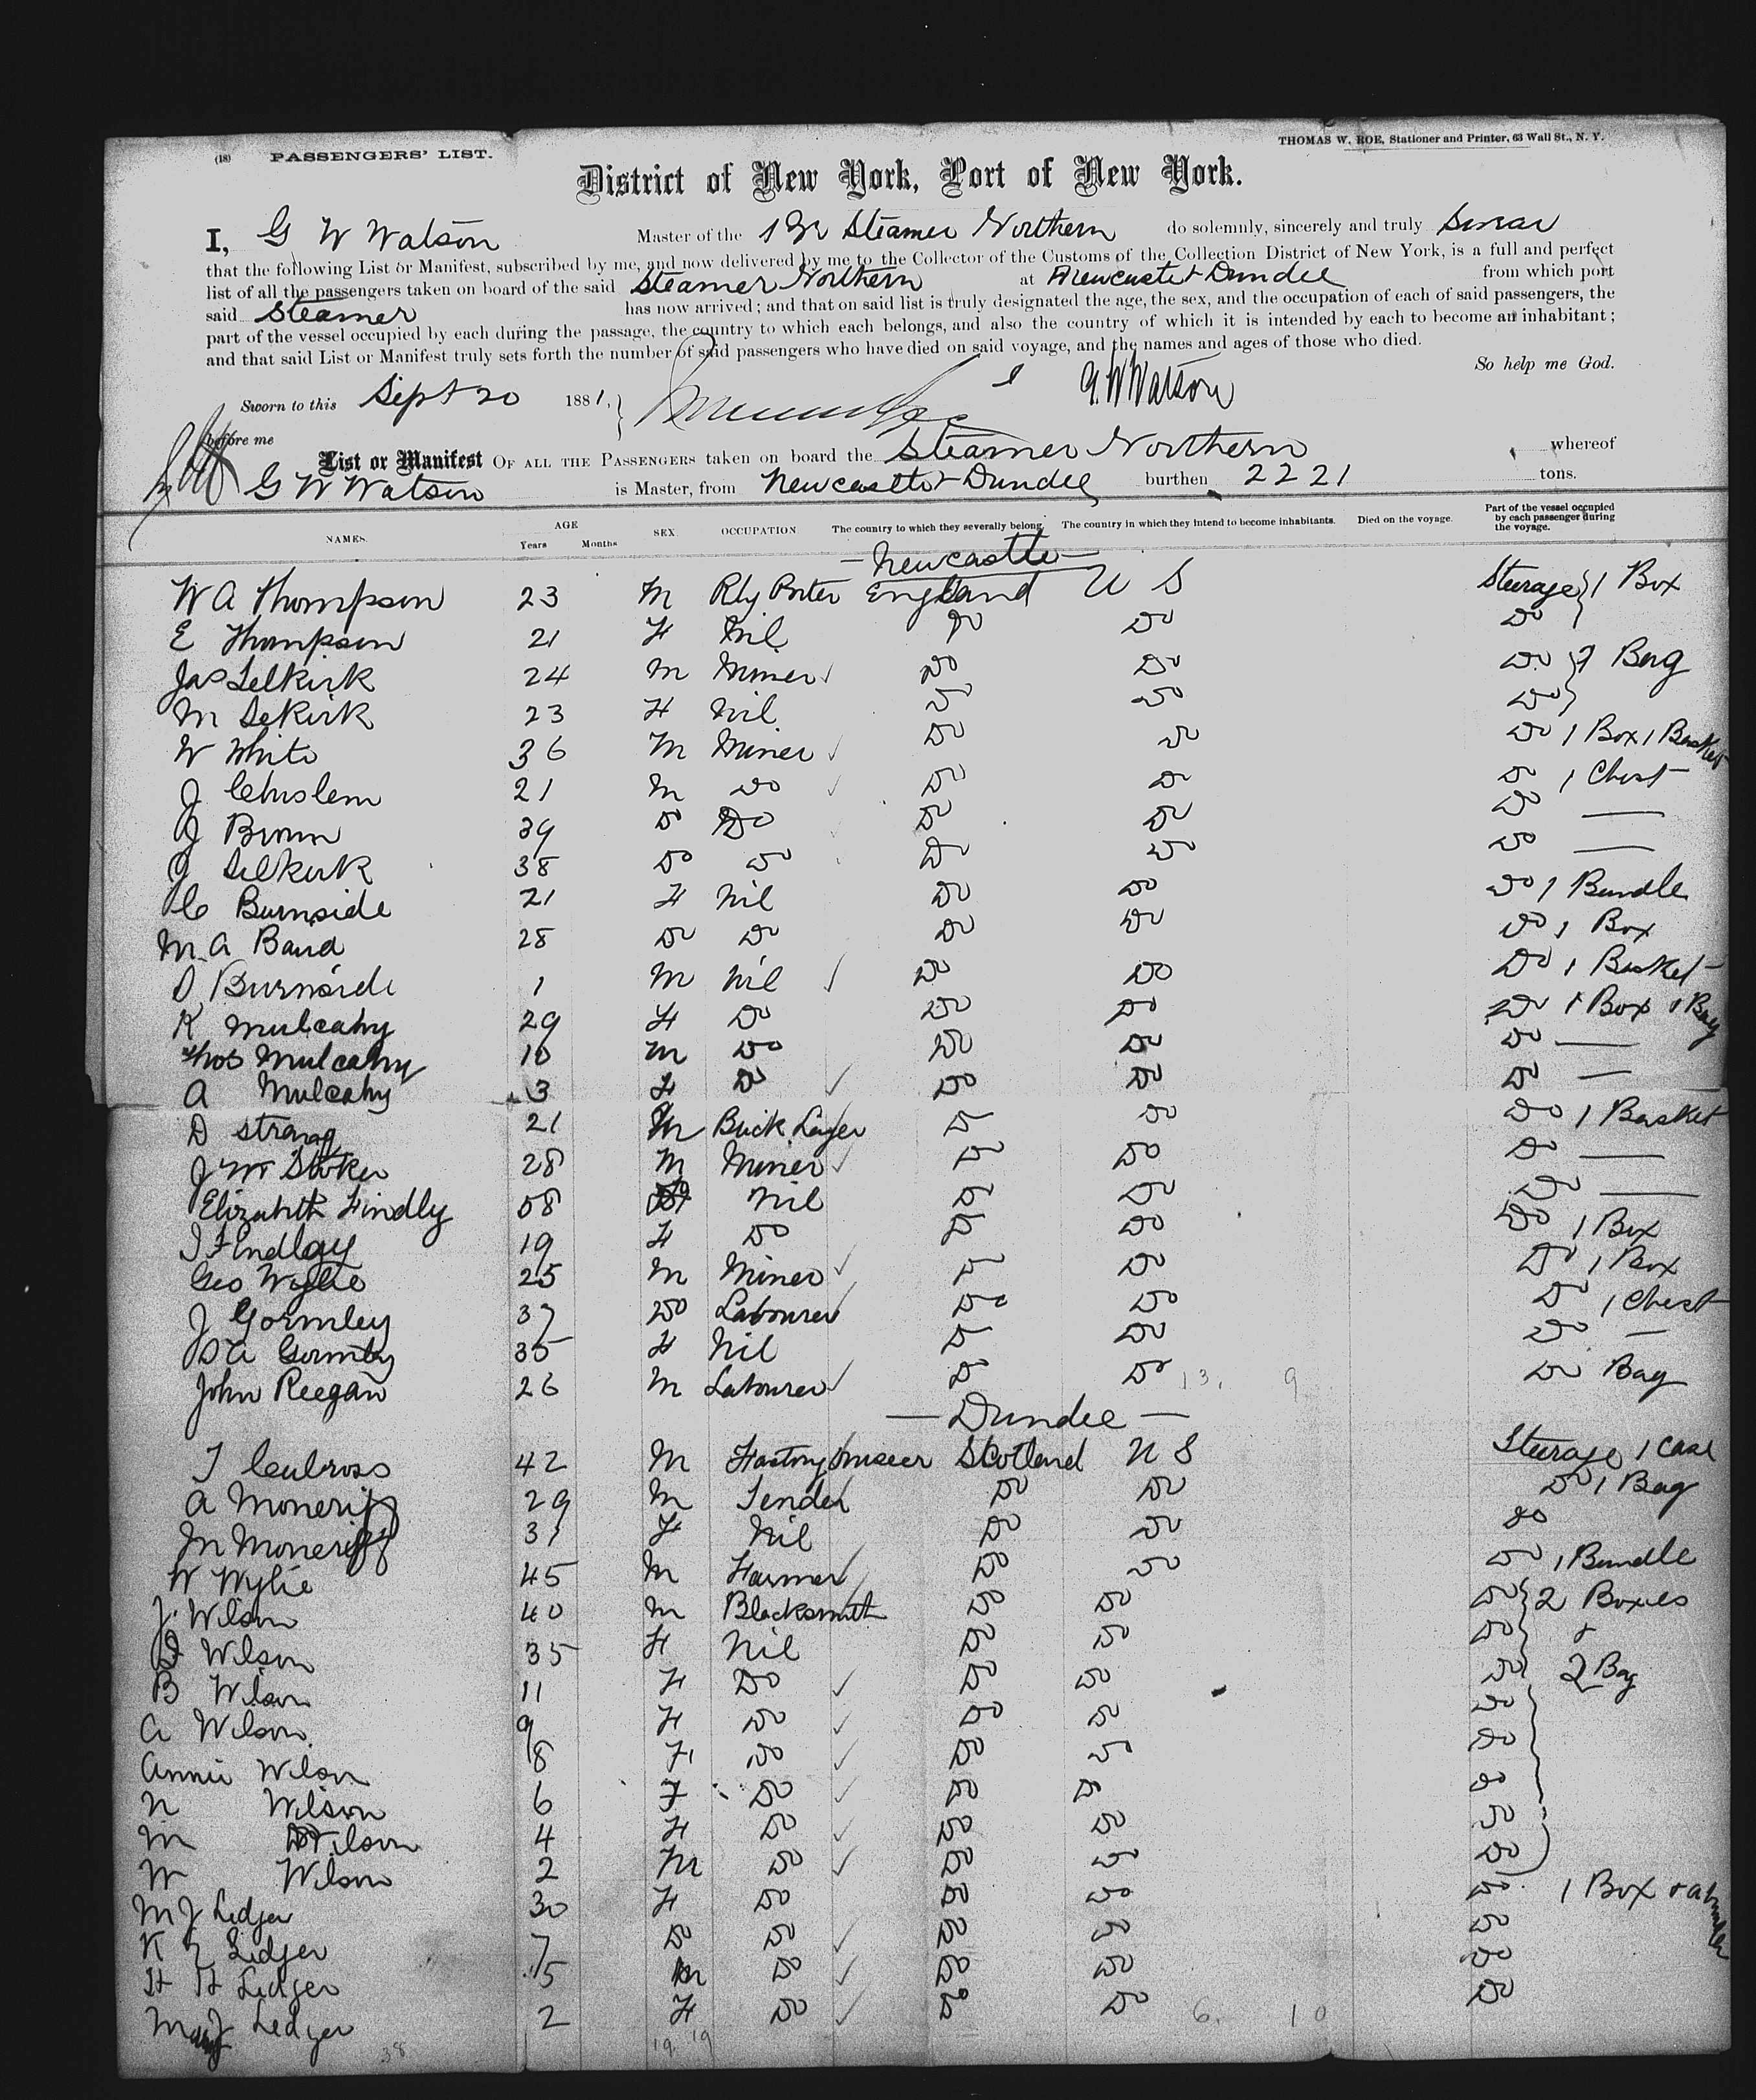 (18) PASSENGERS' LIST.
THOMAS W. ROE, Stationer and Printer, 63 Wall St., N. Y.
District of New York, Port of New York.
I, G W Watson Master of the Steamer Northern do solemnly, sincerely and truly Swear
that the following List or Manifest, subscribed by me, and now delivered by me to the Collector of the Customs of the Collection District of New York, is a full and perfect
list of all the passengers taken on board of the said Steamer Northern at Newcastle & Dundee from which port
said Steamer has now arrived; and that on said list is truly designated the age, the sex, and the occupation of each of said passengers, the
part of the vessel occupied by each during the passage, the country to which each belongs, and also the country of which it is intended by each to become an inhabitant;
and that said List or Manifest truly sets forth the number of said passengers who have died on said voyage, and the names and ages of those who died.
So help me God.
Sworn to this Sept 20 1881, G. W Watson
before me
List or Manifest OF ALL THE PASSENGERS taken on board the Steamer Northern whereof
G W Watson is Master, from Newcastle & Dundee burthen 2221 tons.
NAMES. AGE Years Months SEX. OCCUPATION The country to which they severally belong. The country in which they intend to become inhabitants. Died on the voyage. Part of the vessel occupied by each passenger during the voyage.
— Newcastle —
W A Thompson 23 M Rly Porter England U S Sturage 1 Box
E Thompson 21 F Nil Do Do Do
Jas Selkirk 24 M Miner Do Do Do Bag
M Selkirk 23 F Nil Do Do Do
W White 36 M Miner Do Do Do 1 Box 1 Basket
J Chislem 21 M Do Do Do Do 1 Chest
J Brown 39 Do Do Do Do Do —
J Selkirk 38 Do Do Do Do Do —
C Burnside 21 F Nil Do Do Do 1 Bundle
M. A Baird 28 Do Do Do Do Do 1 Box
D Burnside 1 M Nil Do Do Do 1 Basket
K Mulcahy 29 F Do Do Do Do 1 Box 1 Bag
Thos Mulcahy 10 M Do Do Do Do —
A Mulcahy 3 F Do Do Do Do —
D Strang 21 M Brick Layer Do Do Do 1 Basket
J W Stoker 28 M Miner Do Do Do —
Elizabeth Findly 58 F Nil Do Do Do —
I Findlay 19 F Do Do Do Do 1 Box
Geo Wylie 25 M Miner Do Do Do 1 Box
J Gormley 37 Do Labourer Do Do Do 1 Chest
A Gormley 35 F Nil Do Do Do —
John Reegan 26 M Labourer Do Do 13. 9 Do Bag
— Dundee —
T Culross 42 M Factory Scotland U S Sturage 1 Case
A Moncriff 29 M Tender Do Do Do 1 Bag
M Moncriff 31 F Nil Do Do Do
W Wylie 45 M Farmer Do Do Do 1 Bundle
J. Wilson 40 M Blacksmith Do Do Do 2 Boxes
Wilson 35 F Nil Do Do Do &
B Wilson 11 F Do Do Do Do 2 Bag
A Wilson 9 F Do Do Do Do
Annie Wilson 8 F Do Do Do Do
N Wilson 6 F Do Do Do Do
M Wilson 4 F Do Do Do Do
W Wilson 2 M Do Do Do Do
M J Ledger 30 F Do Do Do Do 1 Box &
K Ledger 7 Do Do Do Do Do
H H Ledger 5 M Do Do Do Do
Mary Ledger 2 F Do Do Do 6. 10 Do
38 19 19